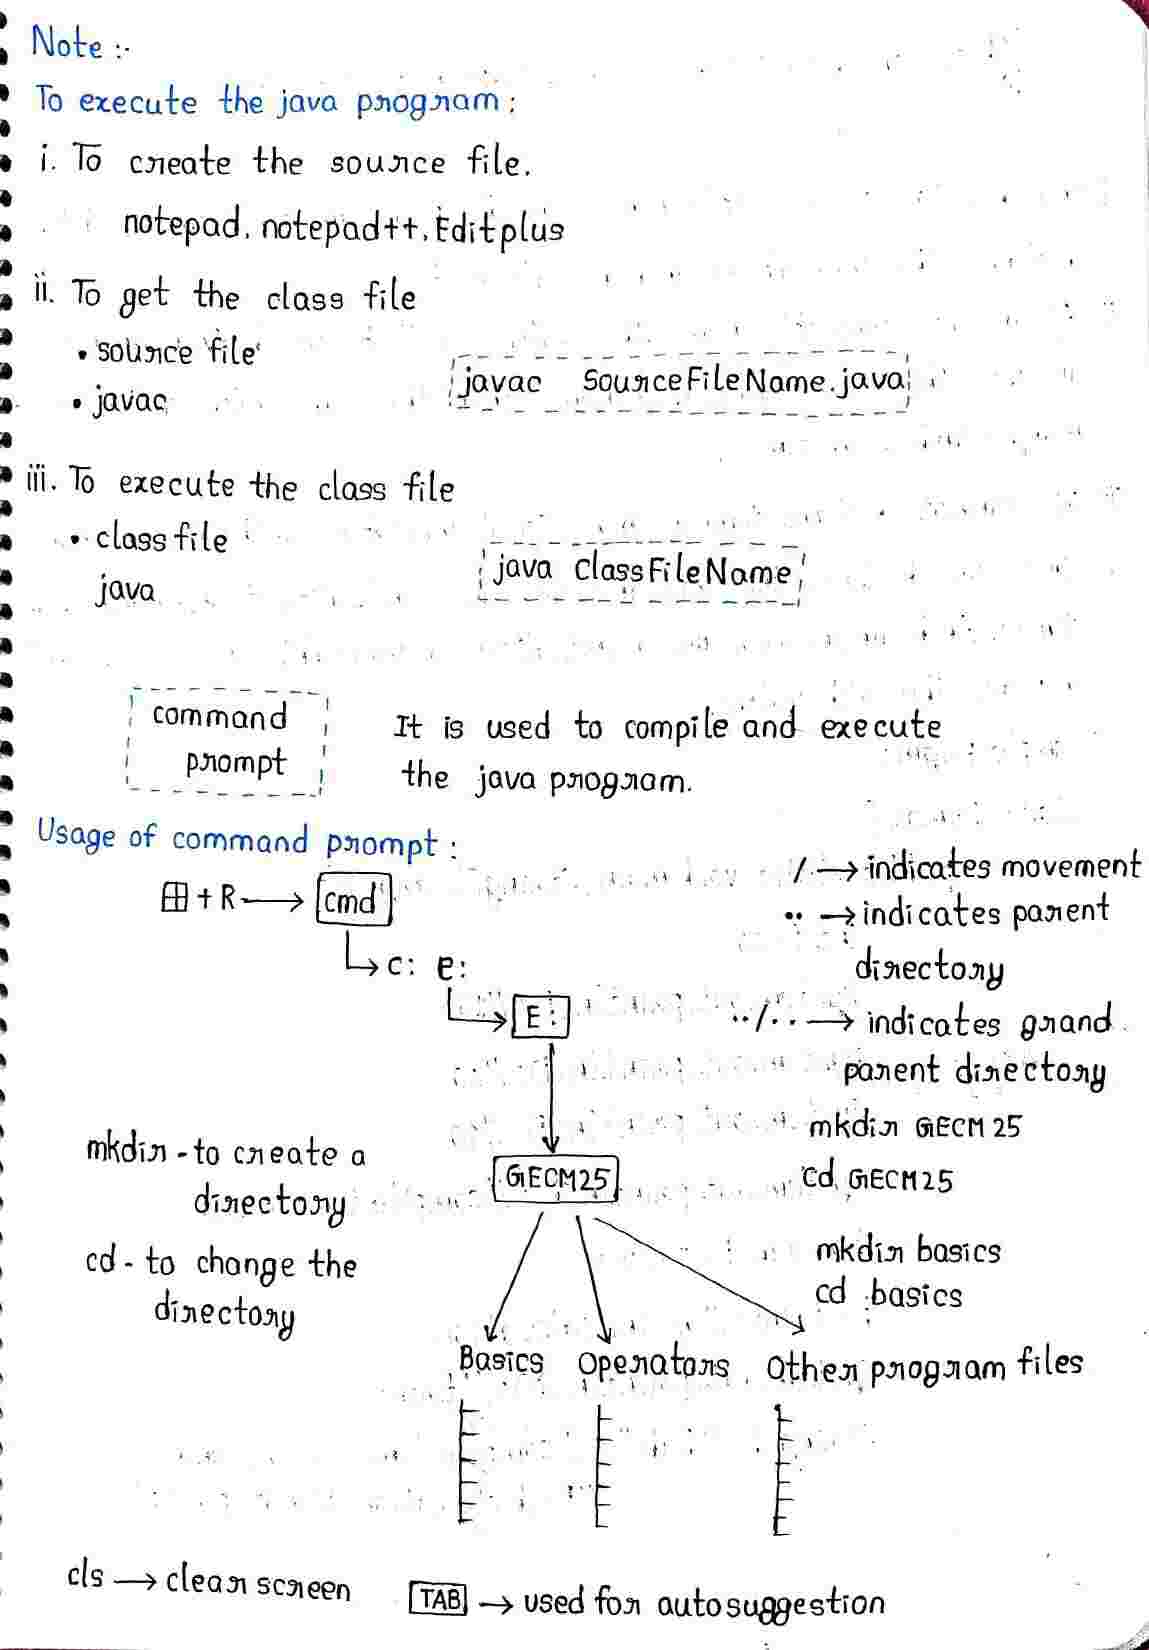 Note :-
To execute the java program :
i. To create the source file.
notepad, notepad++, Editplus
ii. To get the class file
• source file
• javac
javac SourceFileName.java
iii. To execute the class file
• class file
java
java ClassFileName
command
prompt
It is used to compile and execute
the java program.
Usage of command prompt :
⊞ + R → cmd
c: e:
E:
/ → indicates movement
.. → indicates parent
directory
../.. → indicates grand
parent directory
mkdir GECM25
cd GECM25
mkdir basics
cd basics
mkdir - to create a
directory
cd - to change the
directory
GECM25
Basics Operators Other program files
cls → clear screen
TAB → used for autosuggestion